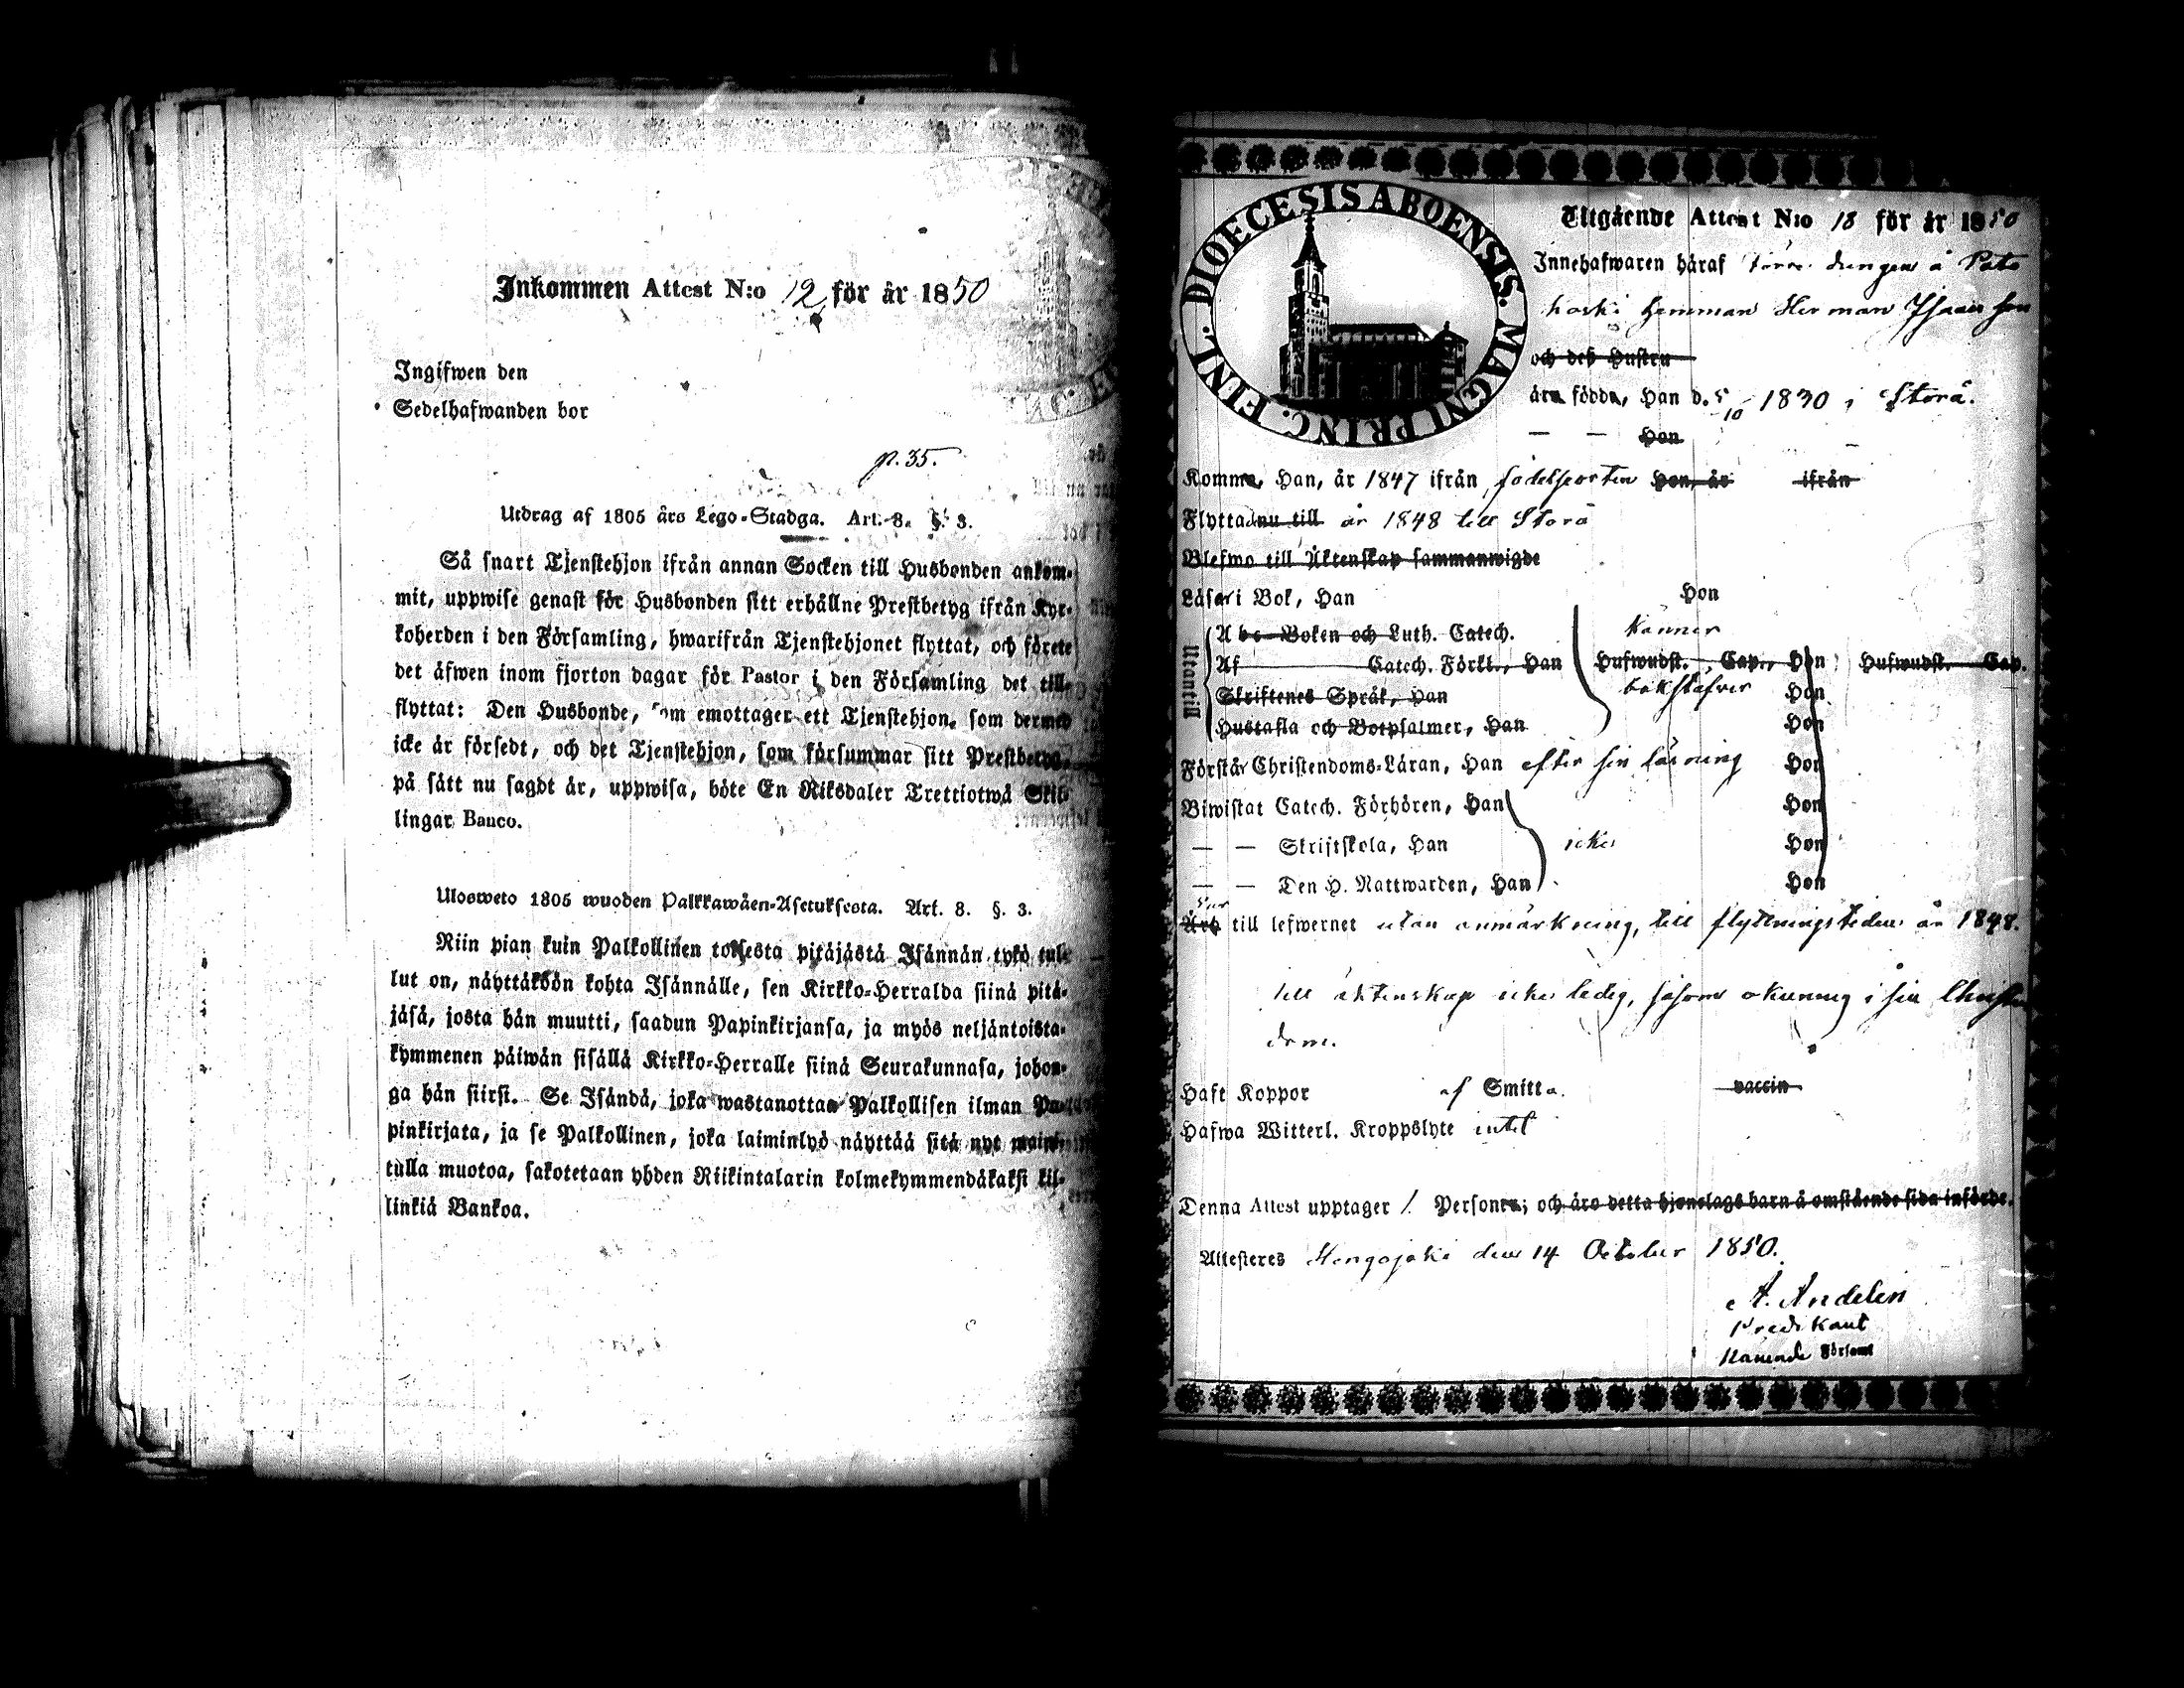 Inkommen Attest N:o 12 för år 1850
Ingifwen den
Sedelhafwanden bor
p. 35.
Utdrag af 1805 års Lego-Stadga. Art. 8. §. 3.
Så snart Tjenstehjon ifrån annan Socken till Husbonden ankom-
mit, uppwise genast för Husbonden sitt erhållne Prestbetyg ifrån Kyr-
koherden i den Församling, hwarifrån Tjenstehjonet flyttat, och förete
det äfwen inom fjorton dagar för Pastor i den Församling det till-
flyttat: Den Husbonde, som emottager ett Tjenstehjon, som dermed
icke är försedt, och det Tjenstehjon, som försummar sitt Prestbetyg,
på sätt nu sagdt är, uppwisa, böte En Riksdaler Trettiotwå Skil-
lingar Banco.
Ulosweto 1805 wuoden Palkkawäen-Asetuksesta. Art. 8. §. 3.
Niin pian kuin Palkollinen toisesta pitäjästä Isännän tykö tul-
lut on, näyttäköön kohta Isännälle, sen Kirkko-Herralda siinä pitä-
jäsä, josta hän muutti, saadun Papinkirjansa, ja myös neljäntoista-
kymmenen päiwän sisällä Kirkko-Herralle siinä Seurakunnasa, johon-
ga hän siirsi. Se Isändä, joka wastanottaa Palkollisen ilman Pa-
pinkirjata, ja se Palkollinen, joka laiminlyö näyttää sitä nyt maini-
tulla muotoa, sakotetaan yhden Riikintalarin kolmekymmendäkaksi kil-
linkiä Bankoa.
DIOECESIS ABOENSIS. MAGNI PRINC. FINL.
Utgående Attest N:o 18 för år 1850
Innehafwaren häraf drengen å Pato
koski hemman Herman Isaacson
och deß Hustru
äro födda, Han d. 5/10 1830 i Storå.
— — Hon
Komma, Han, år 1847 ifrån födelseorten Hon, år ifrån
Flyttade nu till år 1848 till Storå
Blefwo till Äktenskap sammanwigde
Läser i Bok, Han Hon
Utantill
A b c-Boken och Luth. Catech. känner
Af Catech. Förkl., Han Hufwudst. Cap., Hon Hufwudst. Cap.
Skriftenes Språk, Han bokstafver Hon
Hustafla och Botpsalmer, Han Hon
Förstår Christendoms-Läran, Han efter sin läsning Hon
Biwistat Catech. Förhören, Han Hon
— — Skriftskola, Han icke Hon
— — Den H. Nattwarden, Han Hon
Äro till lefwernet utan anmärkning, till flyttningstiden år 1848.
till äktenskap icke ledig, såsom okunnig i sin Christen
dom.
Haft Koppor af Smitta. vaccin
Hafwa Witterl. Kroppslyte intet
Denna Attest upptager 1. Personer; och äro detta hjonelags barn å omstående sida införde.
Attesteres Hongojoki den 14 October 1850.
A. Andelin
Predikant
Församl